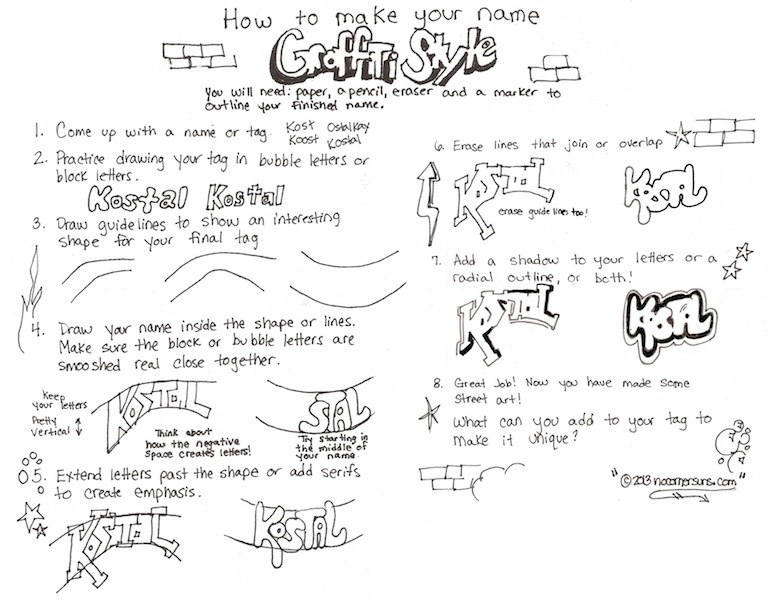 How to make your name
Graffiti Style
You will need: paper, a pencil, eraser and a marker to
outline your finished name.
1. Come up with a name or tag. Kost Ostalkay
Koost Kostal
2. Practice drawing your tag in bubble letters or
block letters.
Kostal Kostal
3. Draw guidelines to show an interesting
shape for your final tag.
4. Draw your name inside the shape or lines.
Make sure the block or bubble letters are
smooshed real close together.
Keep
your letters
Pretty
vertical
KOSTAL
Think about
how the negative
space creates letters!
STAL
Try starting in
the middle of
your name.
5. Extend letters past the shape or add serifs
to create emphasis.
KOSTAL KOSTAL
6. Erase lines that join or overlap
KOSTAL KOSTAL
erase guide lines too!
7. Add a shadow to your letters or a
radial outline, or both!
KOSTAL KOSTAL
8. Great Job! Now you have made some
street art!
What can you add to your tag to
make it unique?
"©2013 nocornersuns.com"